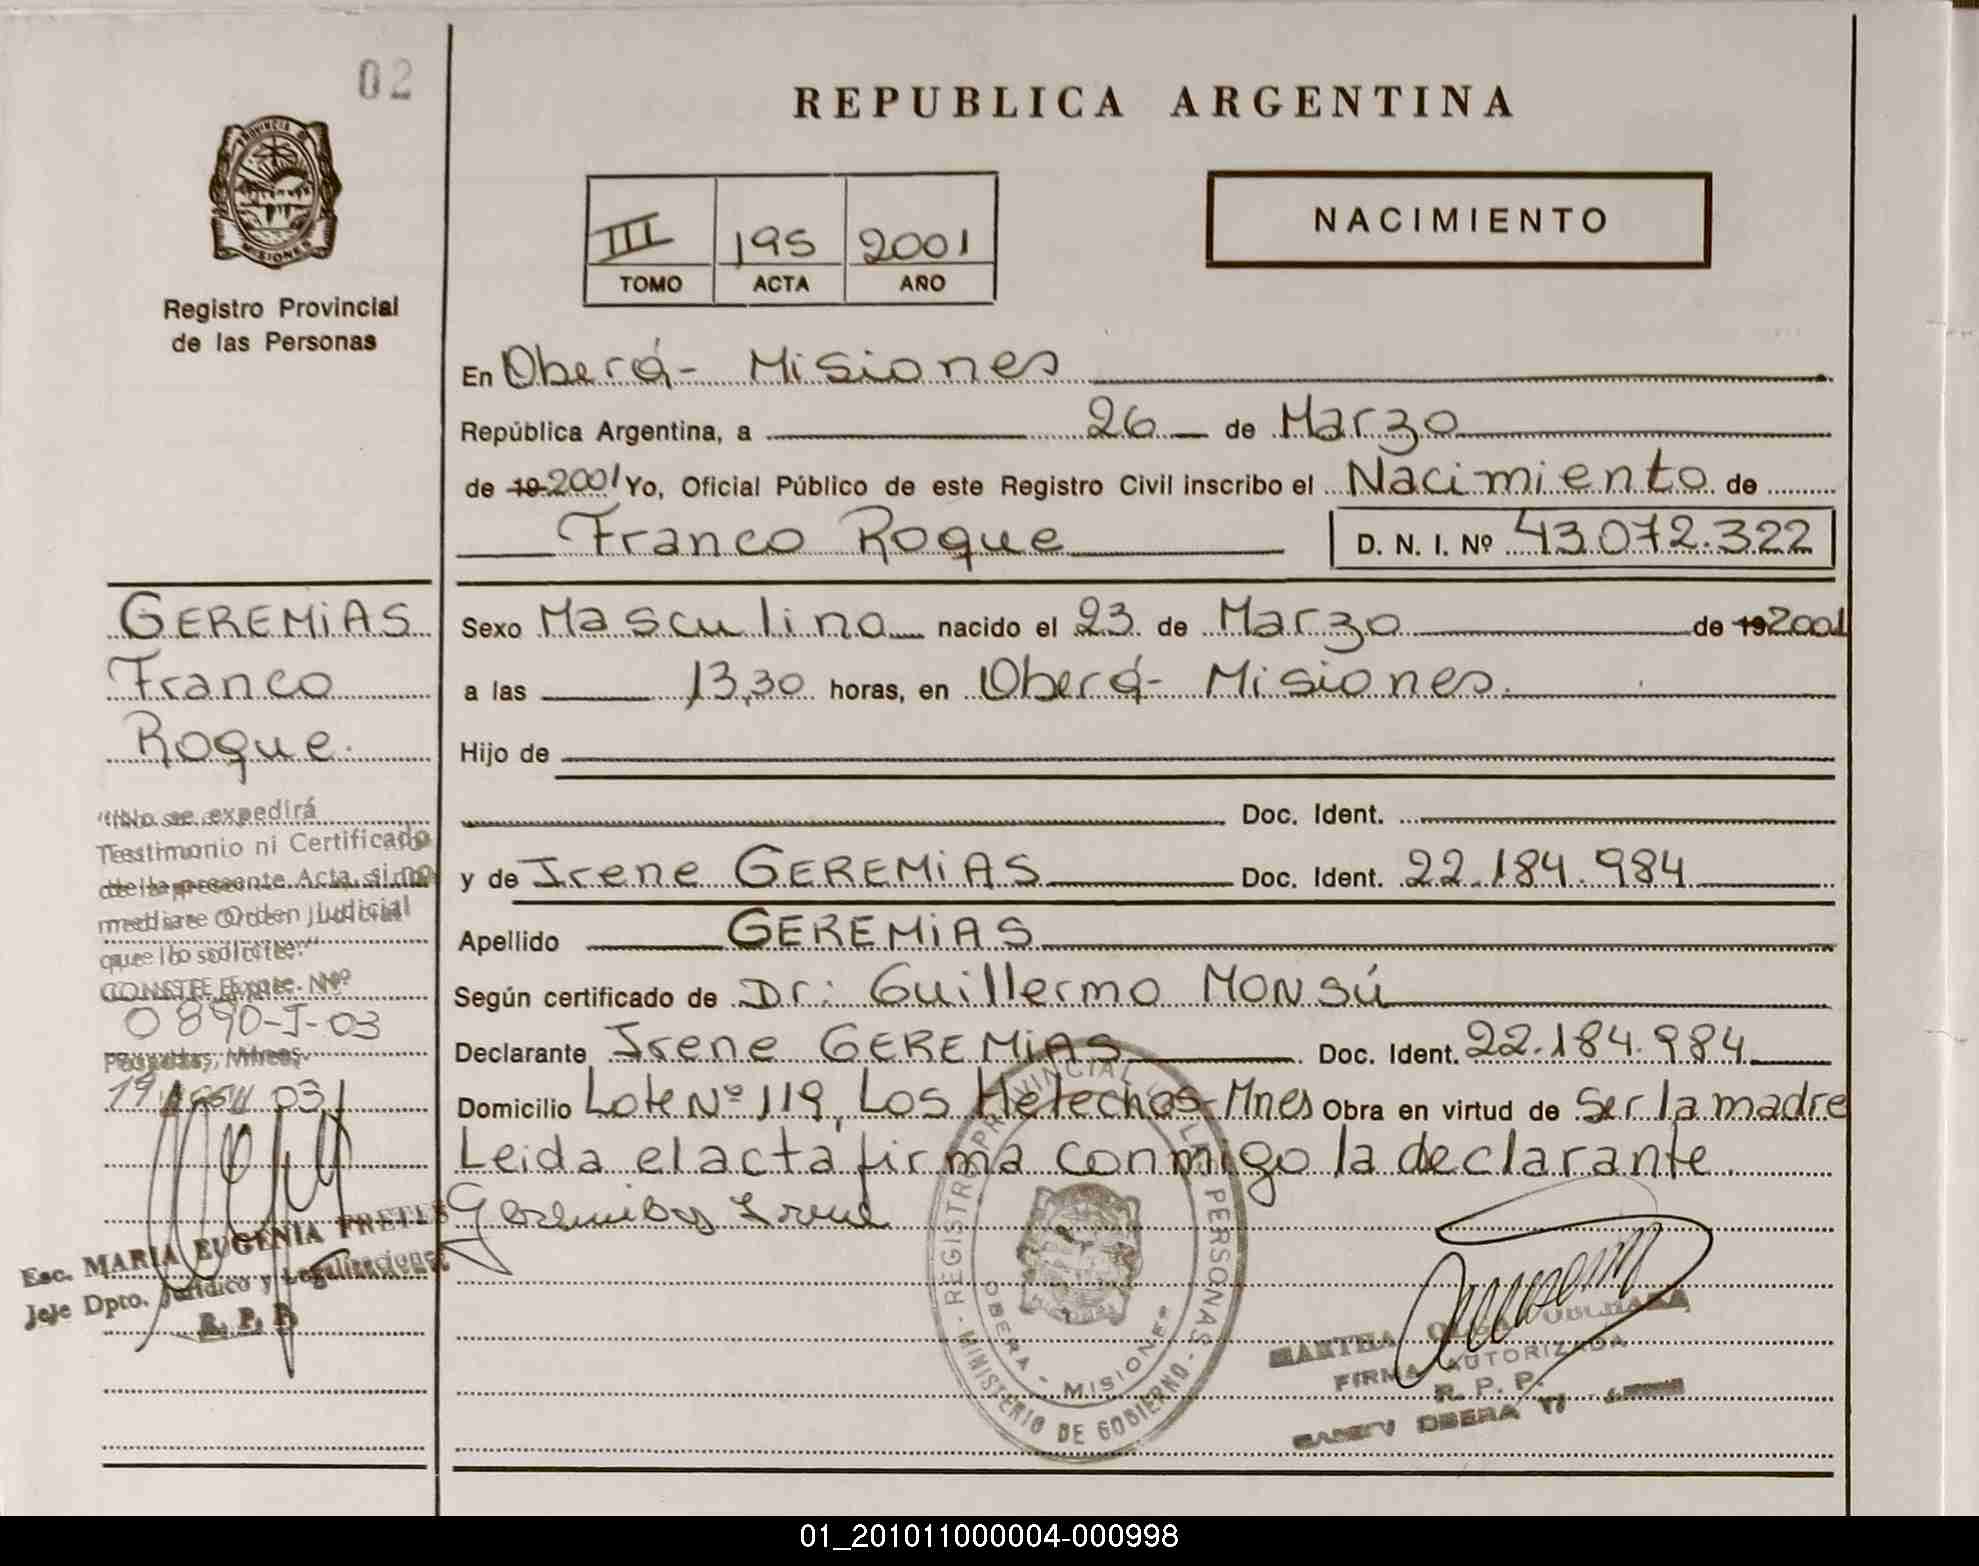 02
PROVINCIA DE
MISIONES
Registro Provincial
de las Personas
REPUBLICA ARGENTINA
III 195 2001
TOMO ACTA AÑO
NACIMIENTO
En Oberá - Misiones
República Argentina, a 26 de Marzo
de 19 2001 Yo, Oficial Público de este Registro Civil inscribo el Nacimiento de
Franco Roque D. N. I. Nº 43.072.322
GEREMiAS
Franco
Roque.
Sexo Masculino nacido el 23 de Marzo de 19 2001
a las 13,30 horas, en Oberá - Misiones.
Hijo de
Doc. Ident.
y de Irene GEREMiAS Doc. Ident. 22.184.984
Apellido GEREMiAS
Según certificado de Dr: Guillermo MONSÚ
Declarante Irene GEREMiAS Doc. Ident. 22.184.984
Domicilio Lote Nº 119, Los Helechos - Mnes Obra en virtud de Ser la madre
Leida el acta firma conmigo la declarante
Geremias Irene
"No se expedirá
Testimonio ni Certificado
de la presente Acta, si no
mediare Orden Judicial
que lo solicite."
CONSTE Expte. Nº
0890-J-03
Posadas, Mnes,
19 03
Esc. MARIA EUGENIA
Jefe Dpto. Jurídico y Legalizaciones
R. P. P.
REGISTRO PROVINCIAL DE LAS PERSONAS
MINISTERIO DE GOBIERNO
OBERA - MISIONES
MARTHA OLGA
FIRMA AUTORIZADA
R. P. P.
OBERA
01_201011000004-000998